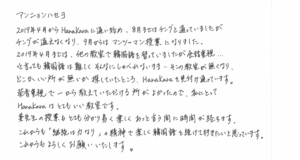 アンニョンハセヨ
2017年4月からHanakaraに通い始め、8月まではチングと通っていましたが
チングが通えなくなり、9月からはマンツーマン授業になりました。
2017年4月までは、他の教室で韓国語を習っていましたが全然覚えず…
と言っても韓国語は難しくそんなにしゃべれない…その教室が無くなり、
どこかいい所が無いか探していたところ、Hanakaraを見付け通っています。
若者電視で一から教えていただける所がよかったので、私にとって
Hanakaraはとてもいい教室です。
先生の授業もとても分かり易く楽しくあっと言う間に時間が経ちます。
これからも“継続は力なり”の精神で楽しく韓国語を続けて行きたいと思っています。
これからもよろしくお願いいたします。